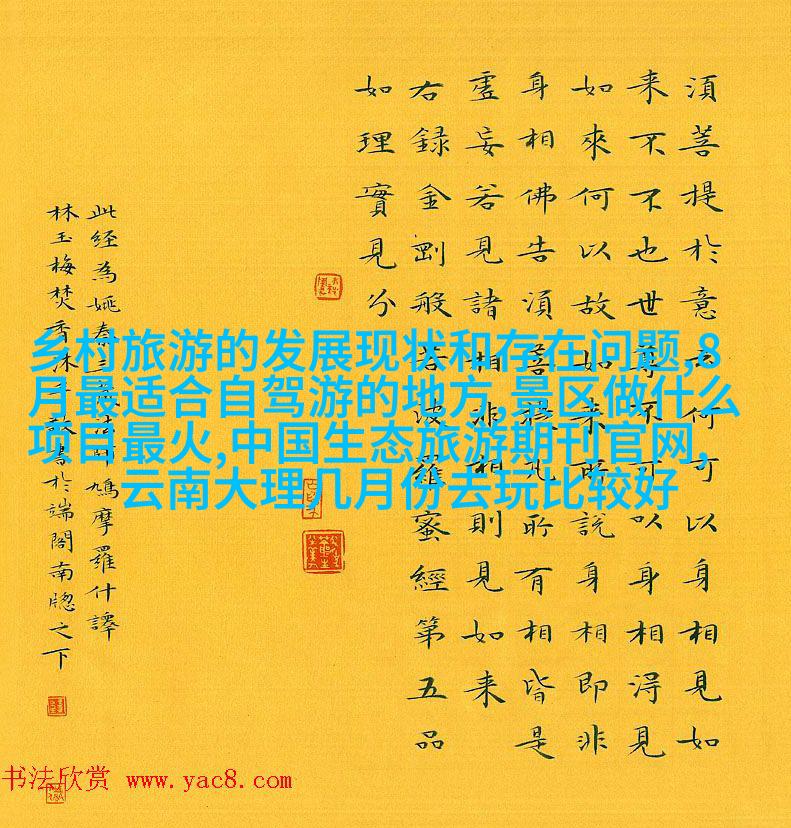 須菩提於意云何可以身相見如
来不不也世尊不可以身相淂見
如來何以故如来所説身相即非
身相佛告須菩提凡所有相皆是
虛妄若見諸相非相則見如来
右録金剛般若波羅蜜經第五品
如理實見分
此経為姚秦三藏法師鳩摩羅什譯
林玉梅焚香沐手敬書於端閣南牕之下
乡村旅游的发展现状和存在问题,8
月最适合自驾游的地方,景区做什么
项目最火,中国生态旅游期刊官网,
云南大理几月份去玩比较好
书法欣赏 www.yac8.com